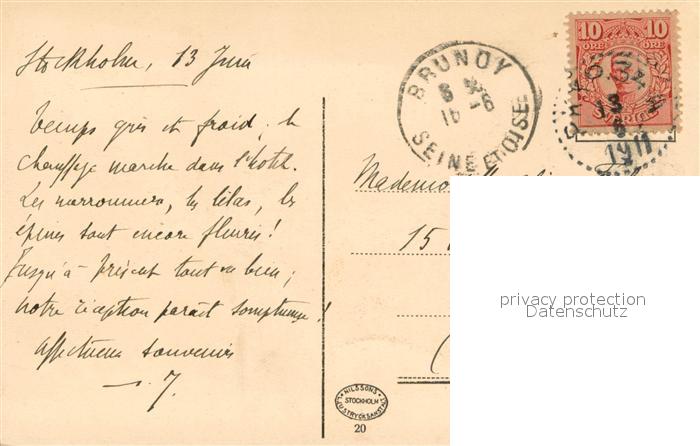 Stockholm, 13 Juin
Temps gris et froid; le
chauffage marche dans l'hotel.
Les marronniers, les lilas, les
épines sont encore fleuris!
Jusqu'à présent tout va bien;
notre réception paraît somptueuse!
Affectueux souvenirs
J.
BRUNOY
16 -6
SEINE ET OISE
10 10
ÖRE ÖRE
SVERIGE
6.34
13 6
1911
Mademoiselle
15
NILSSONS
STOCKHOLM
LJUSTRYCKSANSTALT
20
privacy protection
Datenschutz